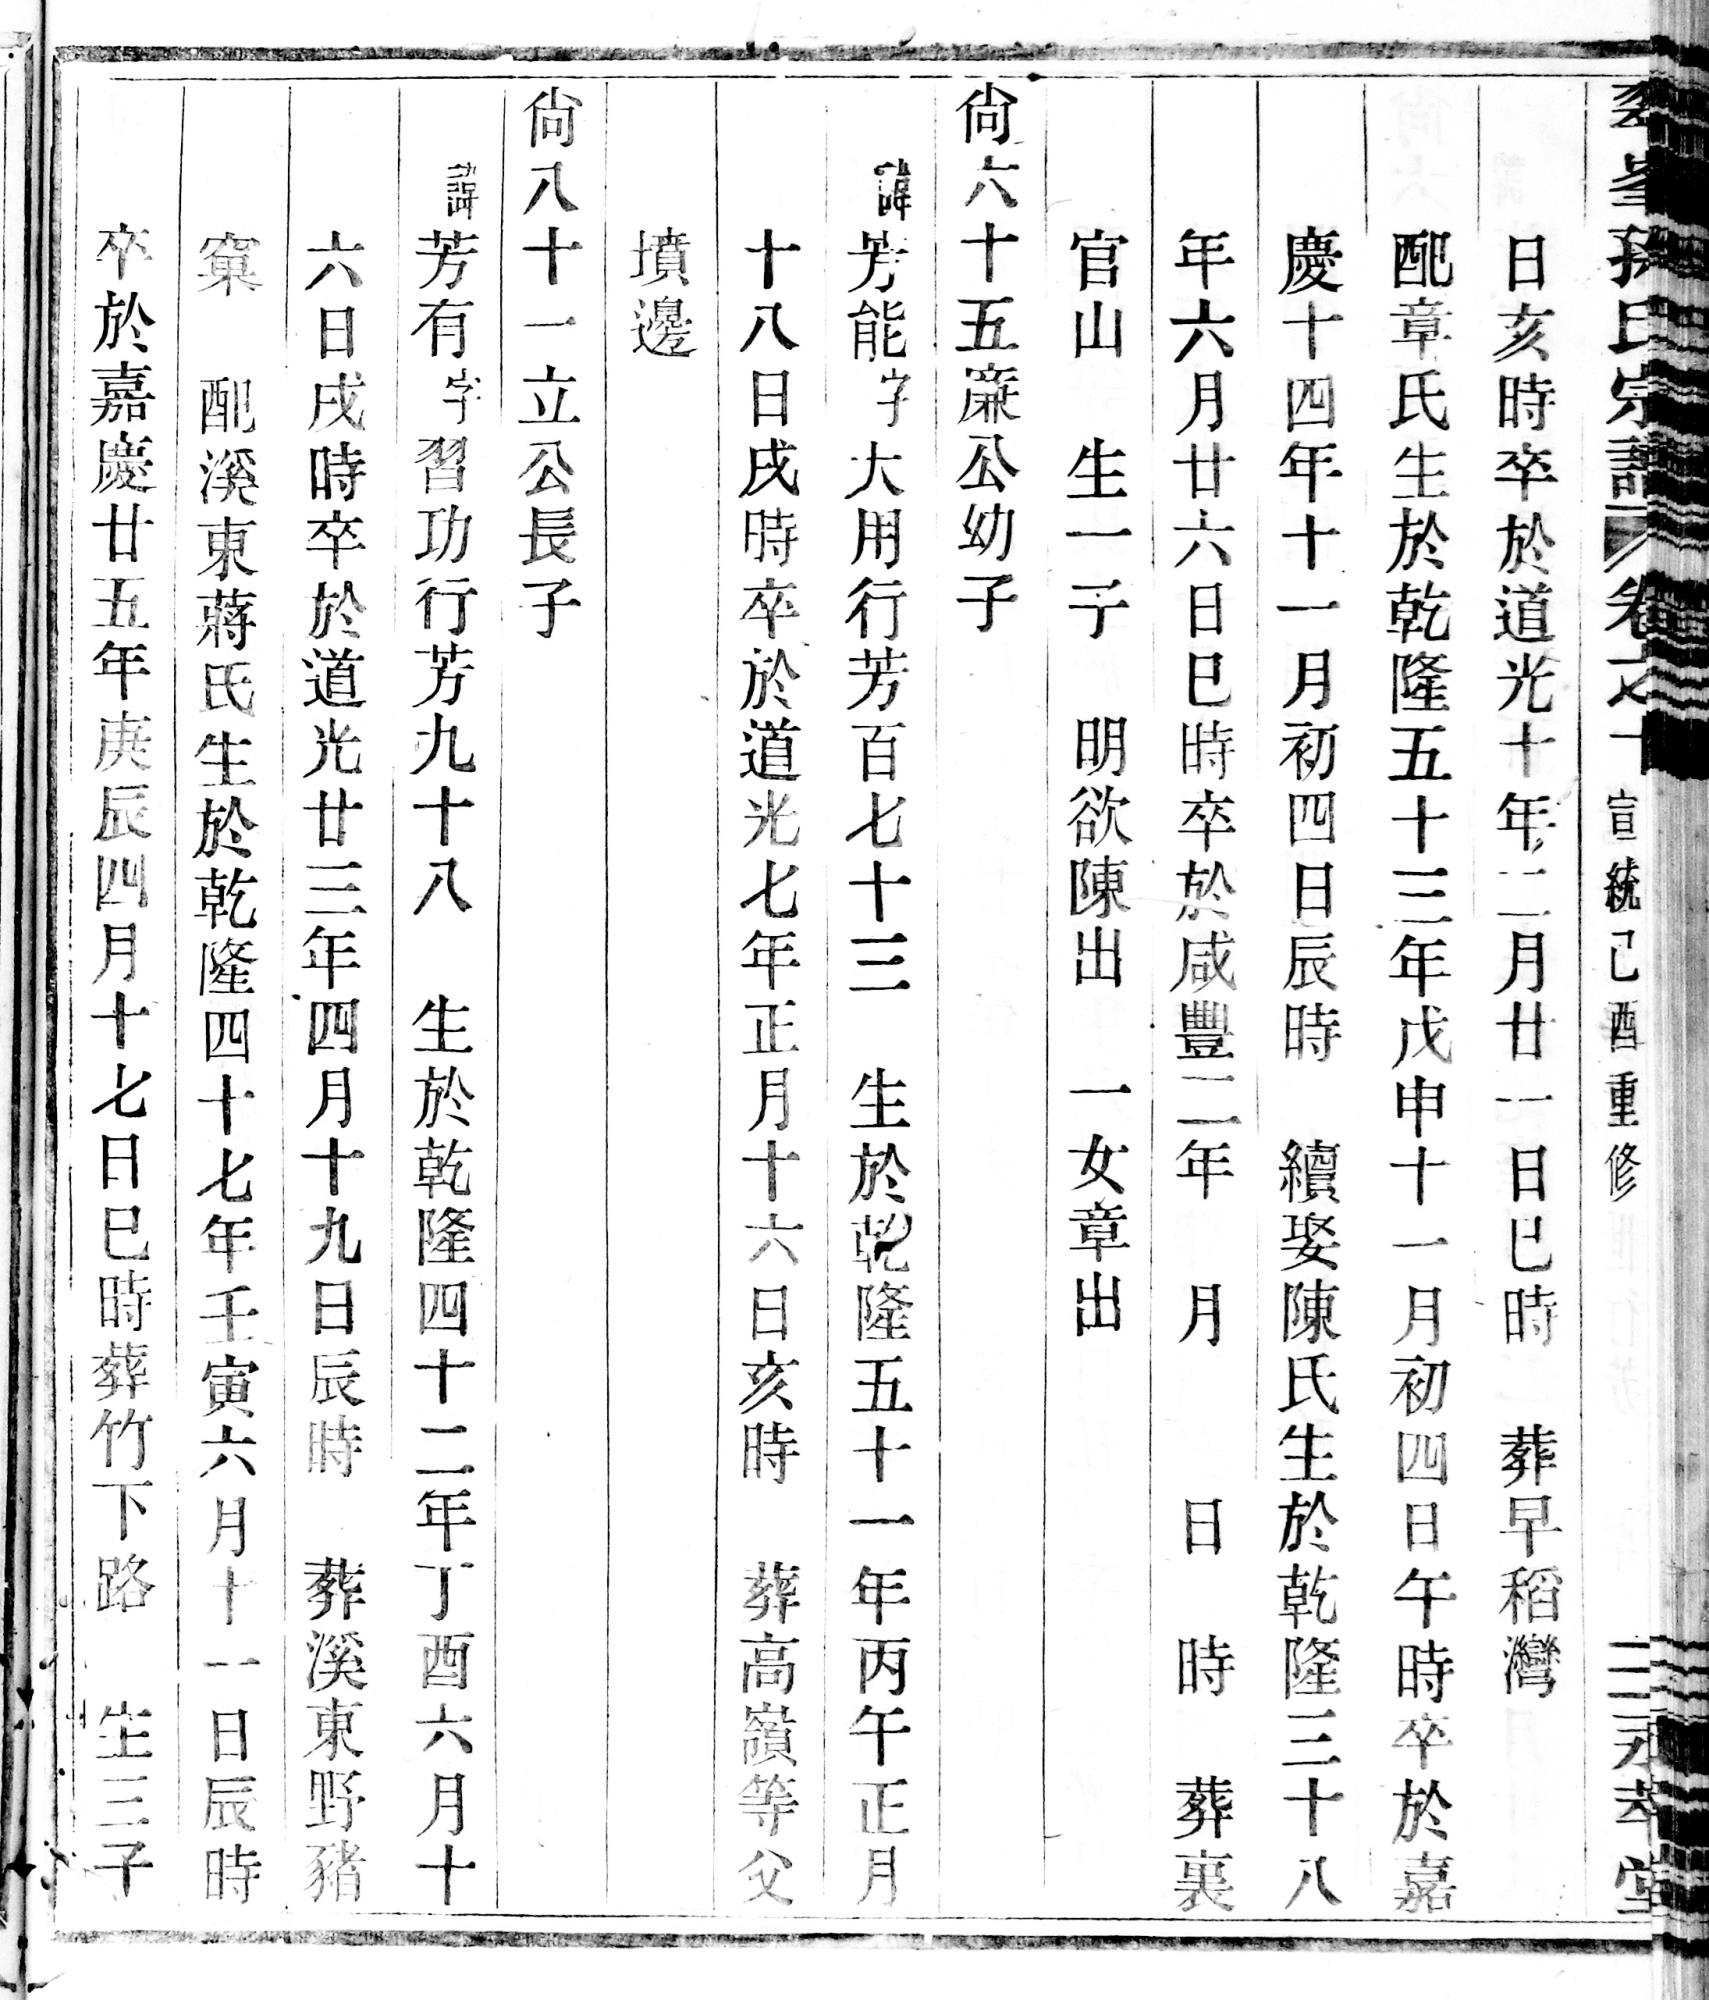 孫氏宗譜 卷之十 宣統己酉重修 二 永萃堂
日亥時卒於道光十年二月廿一日巳時 葬早稻灣
配章氏生於乾隆五十三年戊申十一月初四日午時卒於嘉
慶十四年十一月初四日辰時 續娶陳氏生於乾隆三十八
年六月廿六日巳時卒於咸豐二年 月 日 時 葬裏
官山 生一子 明欲陳出 一女章出
尙六十五廉公幼子
諱芳能字大用行芳百七十三 生於乾隆五十一年丙午正月
十八日戌時卒於道光七年正月十六日亥時 葬高嶺等父
墳邊
尙八十一立公長子
諱芳有字習功行芳九十八 生於乾隆四十二年丁酉六月十
六日戌時卒於道光廿三年四月十九日辰時 葬溪東野豬
窠 配溪東蔣氏生於乾隆四十七年壬寅六月十一日辰時
卒於嘉慶廿五年庚辰四月十七日巳時葬竹下路 生三子